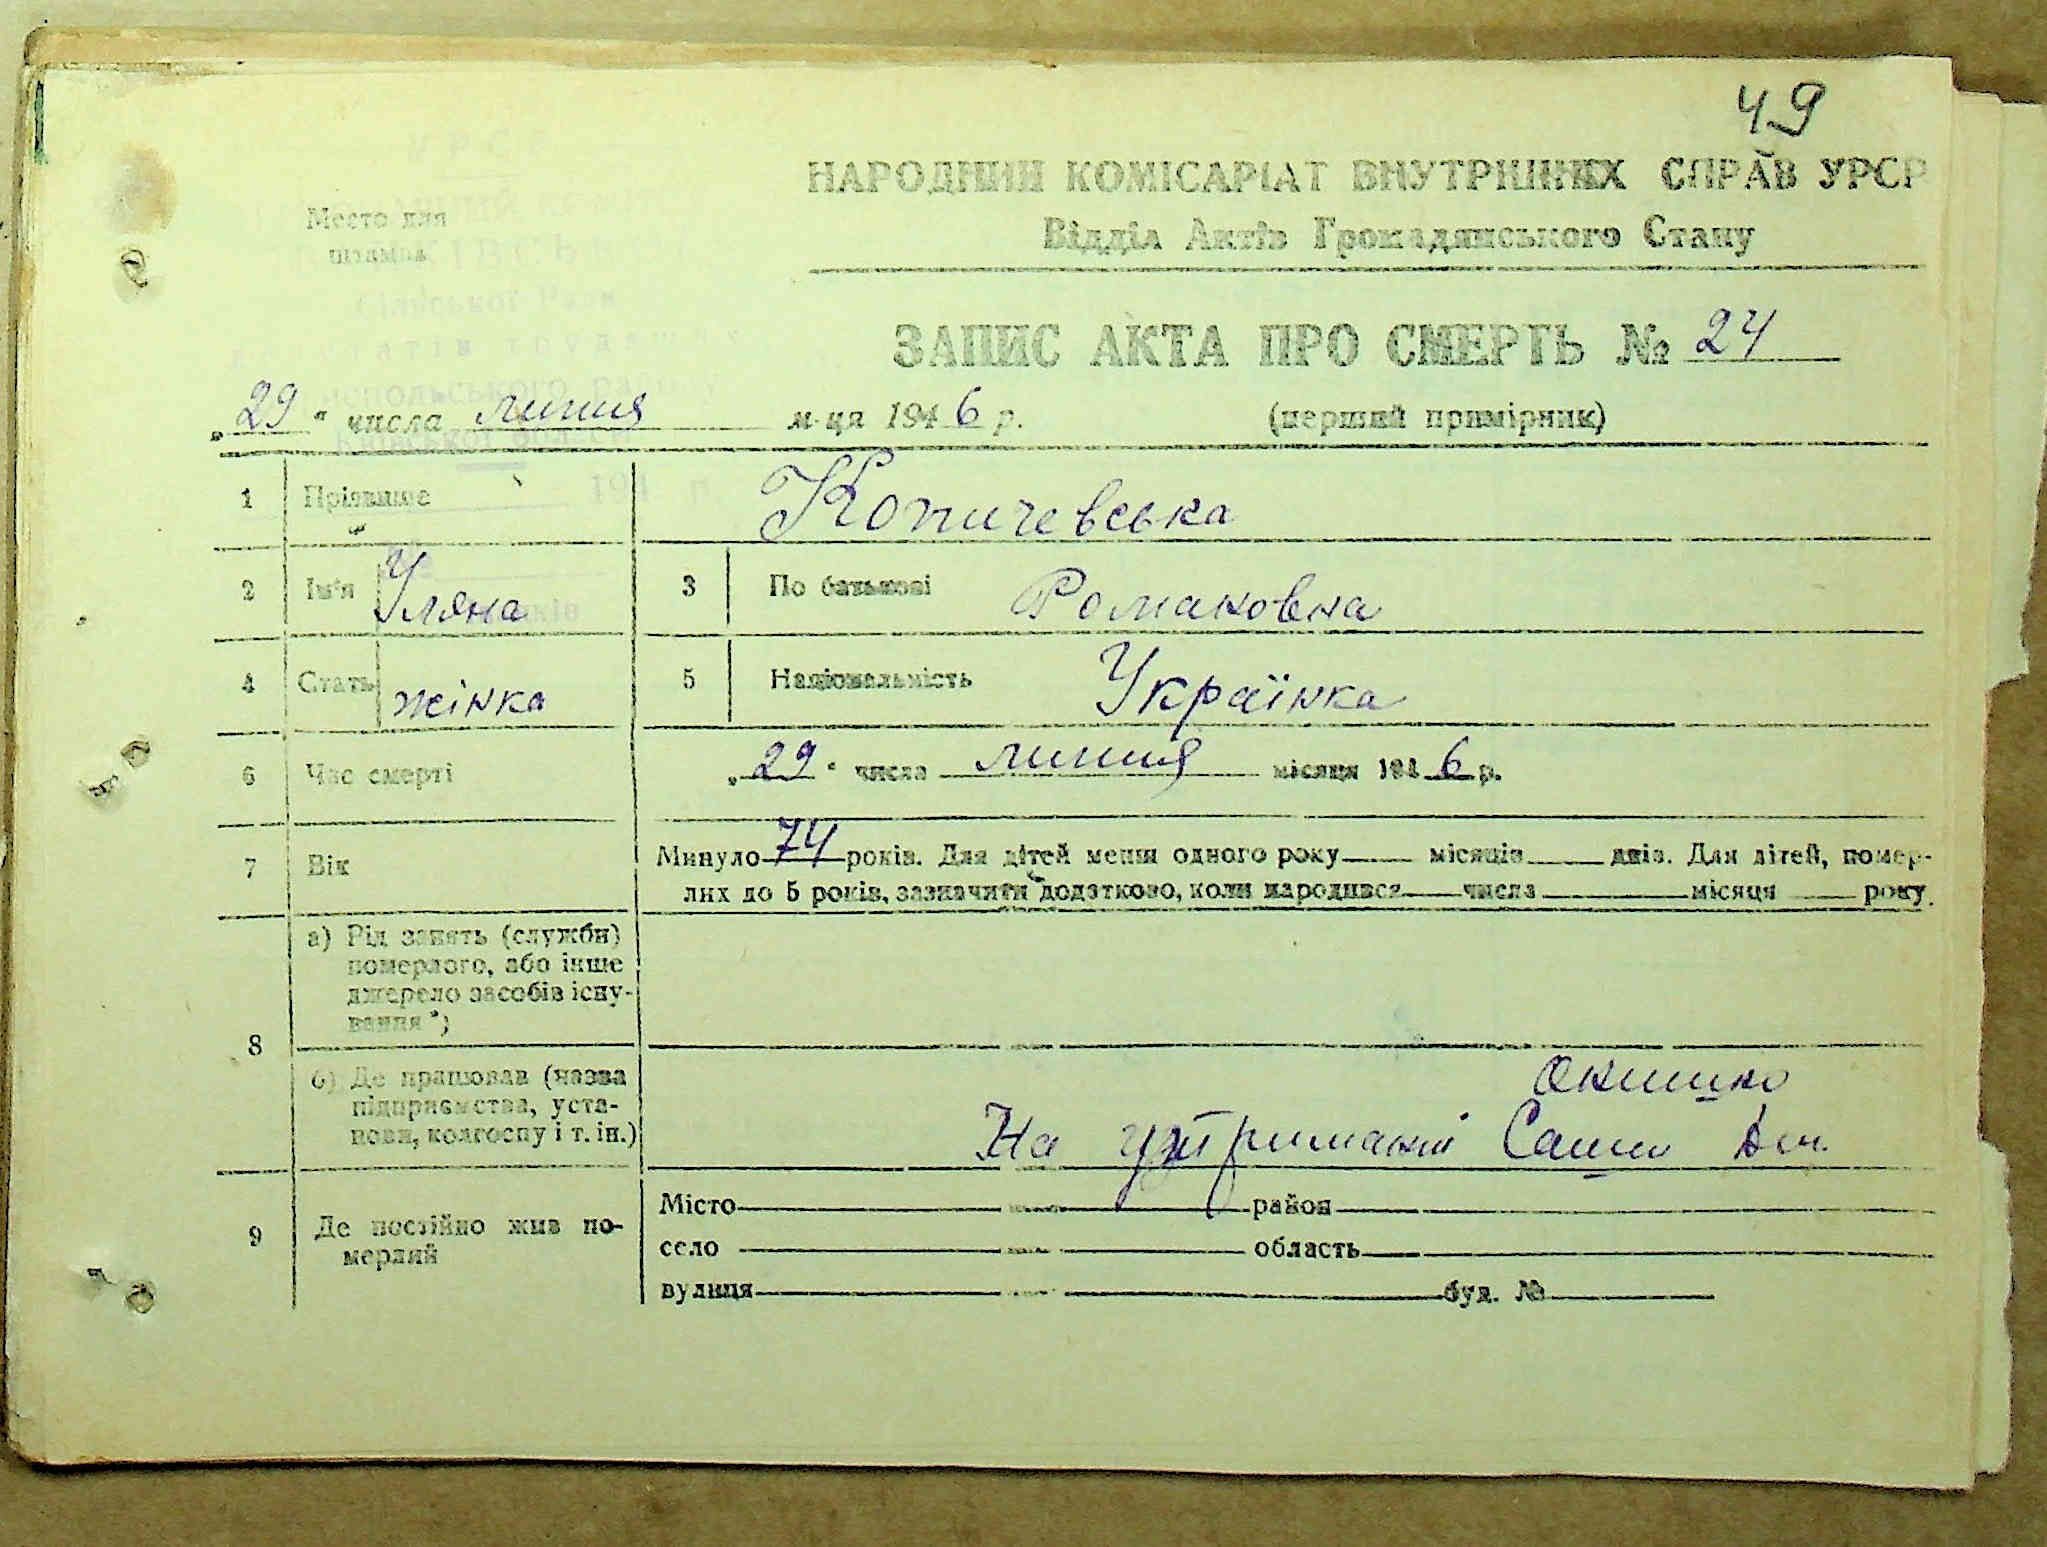 49
НАРОДНИЙ КОМІСАРІАТ ВНУТРІШНІХ СПРАВ УРСР
Место для
штампа
Відділ Актів Громадянського Стану
ЗАПИС АКТА ПРО СМЕРТЬ № 24
„29“ числа липня м-ця 1946 р. (перший примірник)
1 Прізвище Копичевська
2 Ім'я Уляна 3 По батькові Романовна
4 Стать жінка 5 Національність Українка
6 Час смерті „29“ числа липня місяця 1946 р.
7 Вік Минуло 74 років. Для дітей менш одного року місяців днів. Для дітей, помер-
лих до 5 років, зазначити додатково, коли народився числа місяця року.
8 а) Рід занять (служби)
померлого, або інше
джерело засобів існу-
вання*)
б) Де працював (назва
підприємства, уста-
нови, колгоспу і т. ін.)
На утриманні
9 Де постійно жив по-
мерлий
Місто район
село область
вулиця буд. №